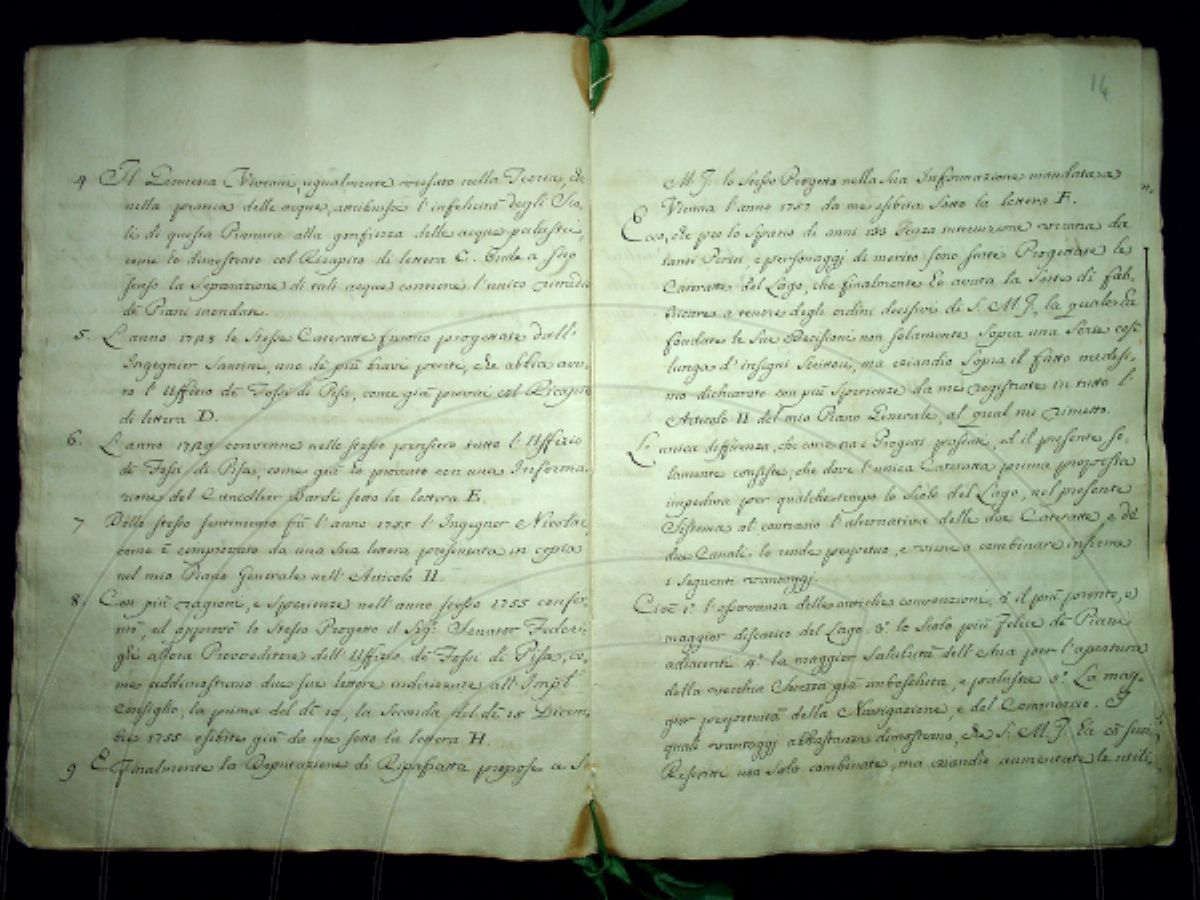 4 Il Geometra Viviani, egualmente versato nella Teoria, che
nella pratica delle acque, attribuisce l'infelicità degli Sco-
li di questa Pianura alla gonfiezza delle acque palustri,
come lo dimostrato col Ricapito di lettera C. Onde a suo
senso la Separazione di tali acque conviene l'unico rimedio
de Piani inondati.
5. L'anno le stesse Cateratte furono progettate dall'
Ingegnier Saurin, uno de più bravi periti, che abbia avu-
to l'Uffizio de Fossi di Pisa, come già provai col Ricapito
di lettera D.
6. L'anno convenne nello stesso pensiero tutto l'Uffizio
de Fossi di Pisa, come già lo provato con una Informa-
zione del Cancellier Bardi sotto la lettera E.
7 Dello stesso sentimento fù l'anno 1755 l'Ingegner Nicolai,
come è comprovato da una sua lettera presentata in copia
nel mio Piano Generale nell'Articolo II.
8. Con più ragioni, e Sperienze nell'anno stesso 1755 confer-
mò, ed approvò lo stesso Progetto il Sigr. Senator Federi-
ghi allora Provveditore dell'Uffizio de Fossi di Pisa, co-
me addimostrano due sue lettere indirizzate all'Impl.
Consiglio, la prima del dì 10, la Seconda del dì 15 Dicem-
bre 1755 esibite già da me sotto la lettera H.
9 E Finalmente la Deputazione di Ripafratta propose a S.
14
M. I. lo stesso Progetto nella sua Informazione mandata a
Vienna l'anno 1757 da me esibita sotto la lettera F.
Ecco, che per lo spazio di anni senza interruzione veruna da
tanti Periti, e personaggi di merito sono state Progettate le
Cateratte del Lago, che finalmente Eo avuta la Sorte di fab-
bricare a tenore degli ordini decisivi di S. M. I. la quale Ea
fondate le sue Decisioni non solamente sopra una Serie così
lunga d'insigni Scrittori, ma eziandio sopra il fatto medesi-
mo dichiarato con più Sperienze da me registrate in tutto l'
Articolo II del mio Piano Generale, al qual mi rimetto.
L'unica differenza, che corre tra i Progetti passati, ed il presente so-
lamente consiste, che dove l'unica Cateratta prima proposta
impediva per qualche tempo lo Scolo del Lago, nel presente
Sistema al contrario l'alternativa delle due Cateratte, e de
due Canali lo rende perpetuo, e viene a combinare insieme
i seguenti vantaggi.
Cioè 1.° l'osservanza delle antiche convenzioni, 2.° il più pronto, e
maggior discarico del Lago 3.° lo Scolo più felice de Piani
adiacenti 4.° la maggior salubrità dell'Aria per l'apertura
della vecchia Serezza già imboschita, e palustre 5.° La mag-
gior perpetuità della Navigazione, e del Commercio. I
quali vantaggi abbastanza dimostrano, che S. M. I. Ea co' suoi
Rescritti non solo combinate, ma eziandio aumentate le utili-